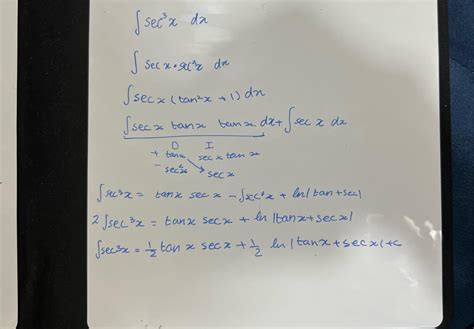 ∫ sec³x dx
∫ sec x · sec²x dx
∫ sec x (tan²x + 1) dx
∫ sec x tan x tan x dx + ∫ sec x dx
D I
+ tan x sec x tan x
- sec²x sec x
∫ sec³x = tan x sec x - ∫ sec³x + ln | tan + sec |
2 ∫ sec³x = tan x sec x + ln | tan x + sec x |
∫ sec³x = 1/2 tan x sec x + 1/2 ln | tan x + sec x | + c